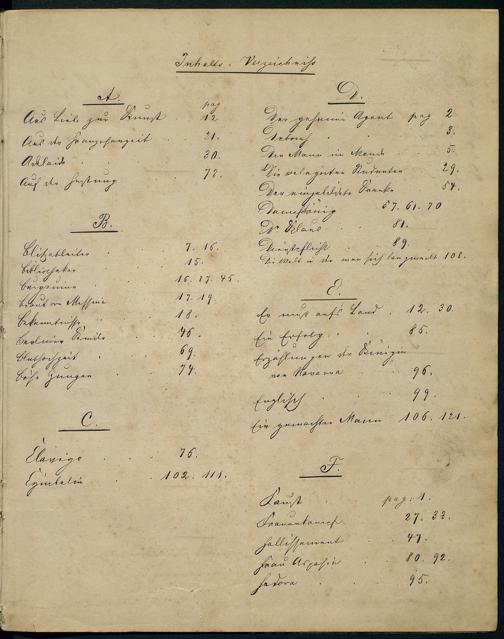 Inhalts-Verzeichniß
A.
pag
Aus Liebe zur Kunst 12.
Aus der Franzosenzeit 21.
Adelaide 30.
Auf der Festung 77.
B.
Blitzableiter 7. 16.
Bibliothekar 15.
16. 17. 45.
Braut von Messina 17. 19.
Bekenntnisse 18.
Berliner Kinder 46.
Bluthochzeit 69.
Böse Zungen 74.
C.
Clavigo 76.
Cymbelin 102. 111.
D.
Der geheime Agent pag 2
3.
Der Mann im Monde 5.
Die relegirten Studenten 29.
Der eingebildete Kranke 54.
Damenkönig 57. 61. 70
Dr Klaus 81.
Dienstpflicht 89.
Die Welt in der man sich langweilt 108.
E.
Er muß aufs Land 12. 30.
Ein Erfolg 85.
Erzählungen der Königin
von Navarra 96.
Englisch 99.
Ein gemachter Mann 106. 121.
F.
Faust pag: 1.
Frauenkampf 27. 32.
Fallissement 47.
Frau Aspasia 80. 92.
Fedora 95.